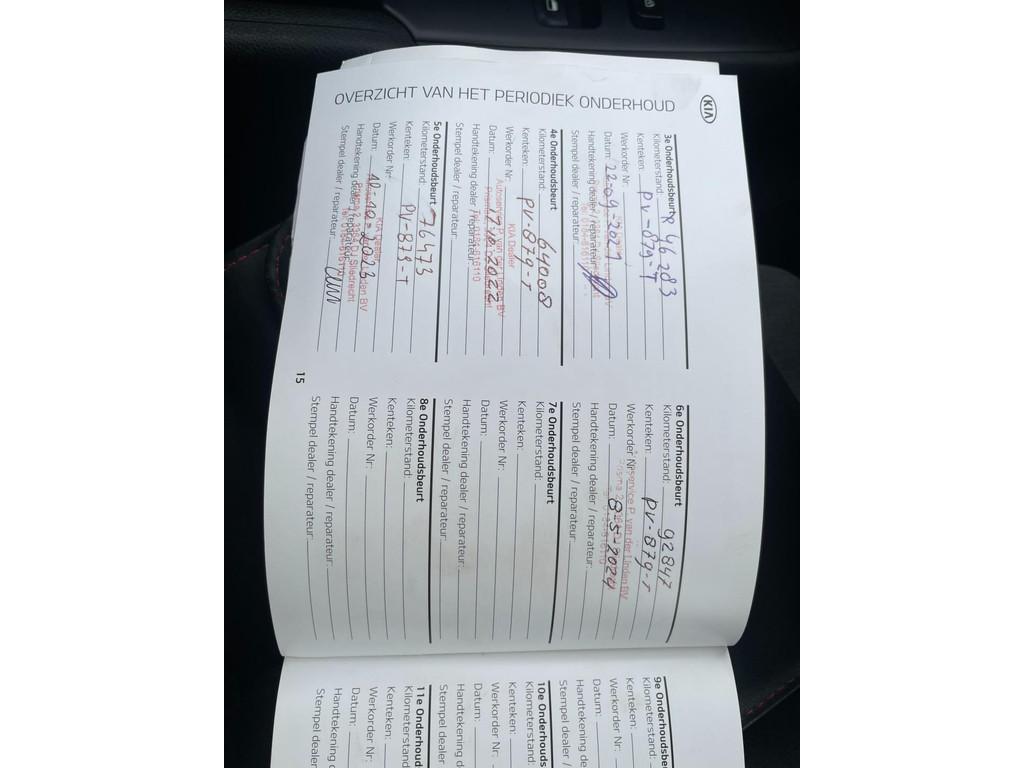 KIA
OVERZICHT VAN HET PERIODIEK ONDERHOUD
3e Onderhoudsbeurt
Kilometerstand: 46283
Kenteken: PV-879-T
Werkorder Nr:
Datum: 22-09-2021
Handtekening dealer / reparateur:
Stempel dealer / reparateur:
4e Onderhoudsbeurt
Kilometerstand: 64008
Kenteken: PV-879-T
KIA Dealer
Werkorder Nr:
Autoservice P. van der Linden BV
Datum: 17-10-2022
Handtekening dealer / reparateur:
Tel. 0184-616110
Stempel dealer / reparateur:
5e Onderhoudsbeurt
Kilometerstand: 76473
Kenteken: PV-879-T
Werkorder Nr:
KIA Dealer
Datum: 10-10-2023
Handtekening dealer / reparateur:
Prisma 2, 3364 DJ Sliedrecht
Tel. 0184-616110
Stempel dealer / reparateur:
6e Onderhoudsbeurt
Kilometerstand: 92847
Kenteken: PV-879-T
Werkorder Nr:
Autoservice P. van der Linden BV
Datum: 8-5-2024
Handtekening dealer / reparateur:
Stempel dealer / reparateur:
7e Onderhoudsbeurt
Kilometerstand:
Kenteken:
Werkorder Nr:
Datum:
Handtekening dealer / reparateur:
Stempel dealer / reparateur:
8e Onderhoudsbeurt
Kilometerstand:
Kenteken:
Werkorder Nr:
Datum:
Handtekening dealer / reparateur:
Stempel dealer / reparateur:
15
9e Onderhoudsbeu
Kilometerstand:
Kenteken:
Werkorder Nr:
Datum:
Handtekening de
Stempel dealer /
10e Onderhouds
Kilometerstand:
Kenteken:
Werkorder Nr:
Datum:
Handtekening d
Stempel dealer
11e Onderhouds
Kilometerstand
Kenteken:
Werkorder Nr:
Datum:
Handtekening d
Stempel dealer